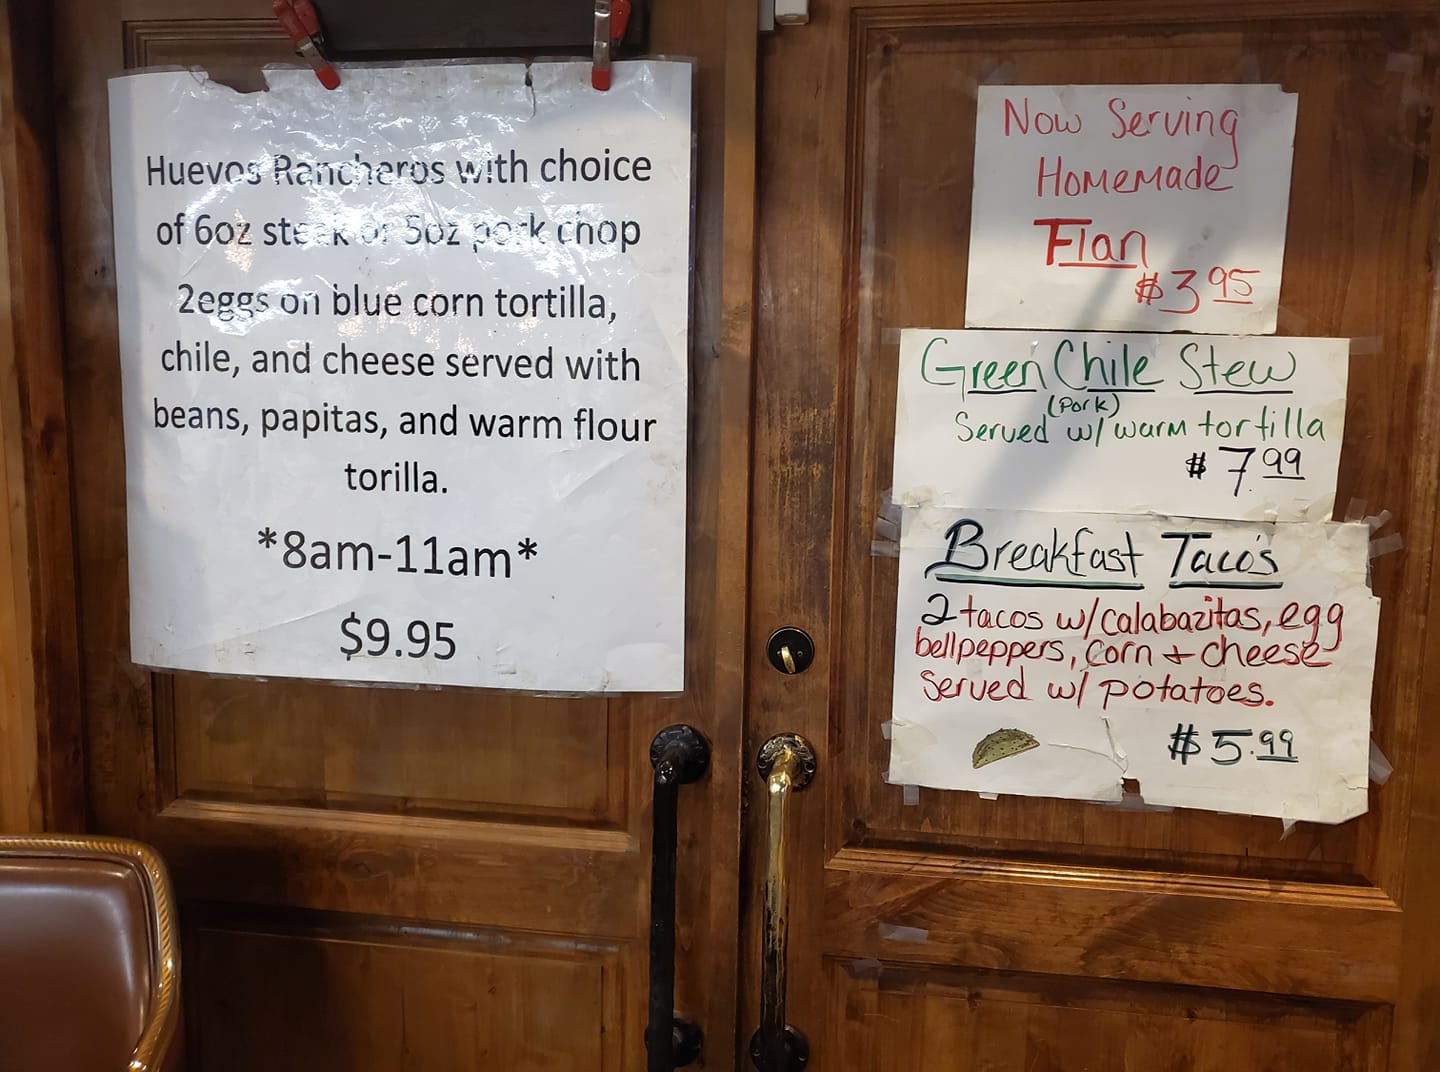 Huevos Rancheros with choice
of 6oz steak or 5oz pork chop
2eggs on blue corn tortilla,
chile, and cheese served with
beans, papitas, and warm flour
torilla.
*8am-11am*
$9.95
Now Serving
Homemade
Flan
$3.95
Green Chile Stew
(Pork)
Served w/ warm tortilla
$7.99
Breakfast Taco's
2 tacos w/calabazitas, egg
bellpeppers, corn + cheese
served w/ potatoes.
$5.99